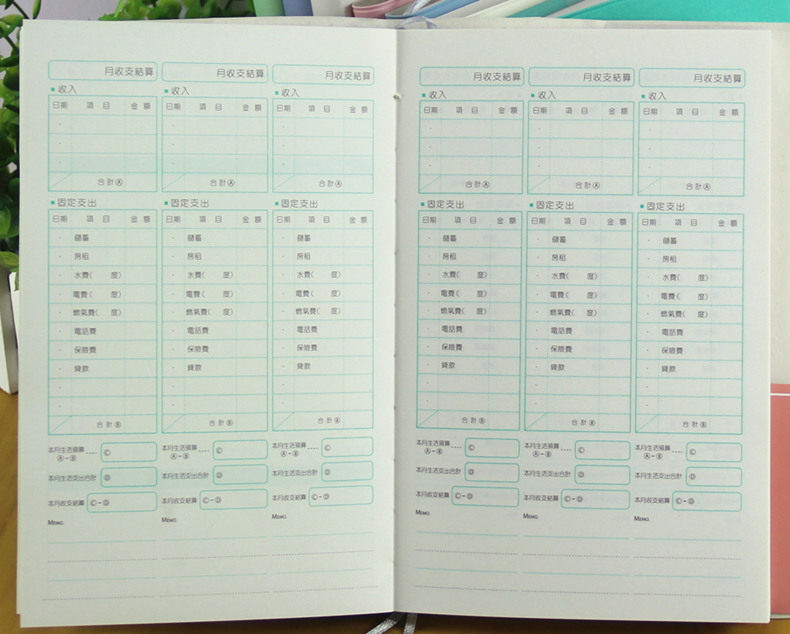 月收支結算
收入
日期 項目 金額
合計Ⓐ
固定支出
日期 項目 金額
儲蓄
房租
水費( 度)
電費( 度)
燃氣費( 度)
電話費
保險費
貸款
合計Ⓑ
本月生活預算 ---- Ⓒ
Ⓐ-Ⓑ
本月生活支出合計 Ⓓ
本月收支結算 Ⓒ-Ⓓ
MEMO.
月收支結算
收入
日期 項目 金額
合計Ⓐ
固定支出
日期 項目 金額
儲蓄
房租
水費( 度)
電費( 度)
燃氣費( 度)
電話費
保險費
貸款
合計Ⓑ
本月生活預算 ---- Ⓒ
Ⓐ-Ⓑ
本月生活支出合計 Ⓓ
本月收支結算 Ⓒ-Ⓓ
MEMO.
月收支結算
收入
日期 項目 金額
合計Ⓐ
固定支出
日期 項目 金額
儲蓄
房租
水費( 度)
電費( 度)
燃氣費( 度)
電話費
保險費
貸款
合計Ⓑ
本月生活預算 ---- Ⓒ
Ⓐ-Ⓑ
本月生活支出合計 Ⓓ
本月收支結算 Ⓒ-Ⓓ
MEMO.
月收支結算
收入
日期 項目 金額
合計Ⓐ
固定支出
日期 項目 金額
儲蓄
房租
水費( 度)
電費( 度)
燃氣費( 度)
電話費
保險費
貸款
合計Ⓑ
本月生活預算 ---- Ⓒ
Ⓐ-Ⓑ
本月生活支出合計 Ⓓ
本月收支結算 Ⓒ-Ⓓ
MEMO.
月收支結算
收入
日期 項目 金額
合計Ⓐ
固定支出
日期 項目 金額
儲蓄
房租
水費( 度)
電費( 度)
燃氣費( 度)
電話費
保險費
貸款
合計Ⓑ
本月生活預算 ---- Ⓒ
Ⓐ-Ⓑ
本月生活支出合計 Ⓓ
本月收支結算 Ⓒ-Ⓓ
MEMO.
月收支結算
收入
日期 項目 金額
合計Ⓐ
固定支出
日期 項目 金額
儲蓄
房租
水費( 度)
電費( 度)
燃氣費( 度)
電話費
保險費
貸款
合計Ⓑ
本月生活預算 ---- Ⓒ
Ⓐ-Ⓑ
本月生活支出合計 Ⓓ
本月收支結算 Ⓒ-Ⓓ
MEMO.